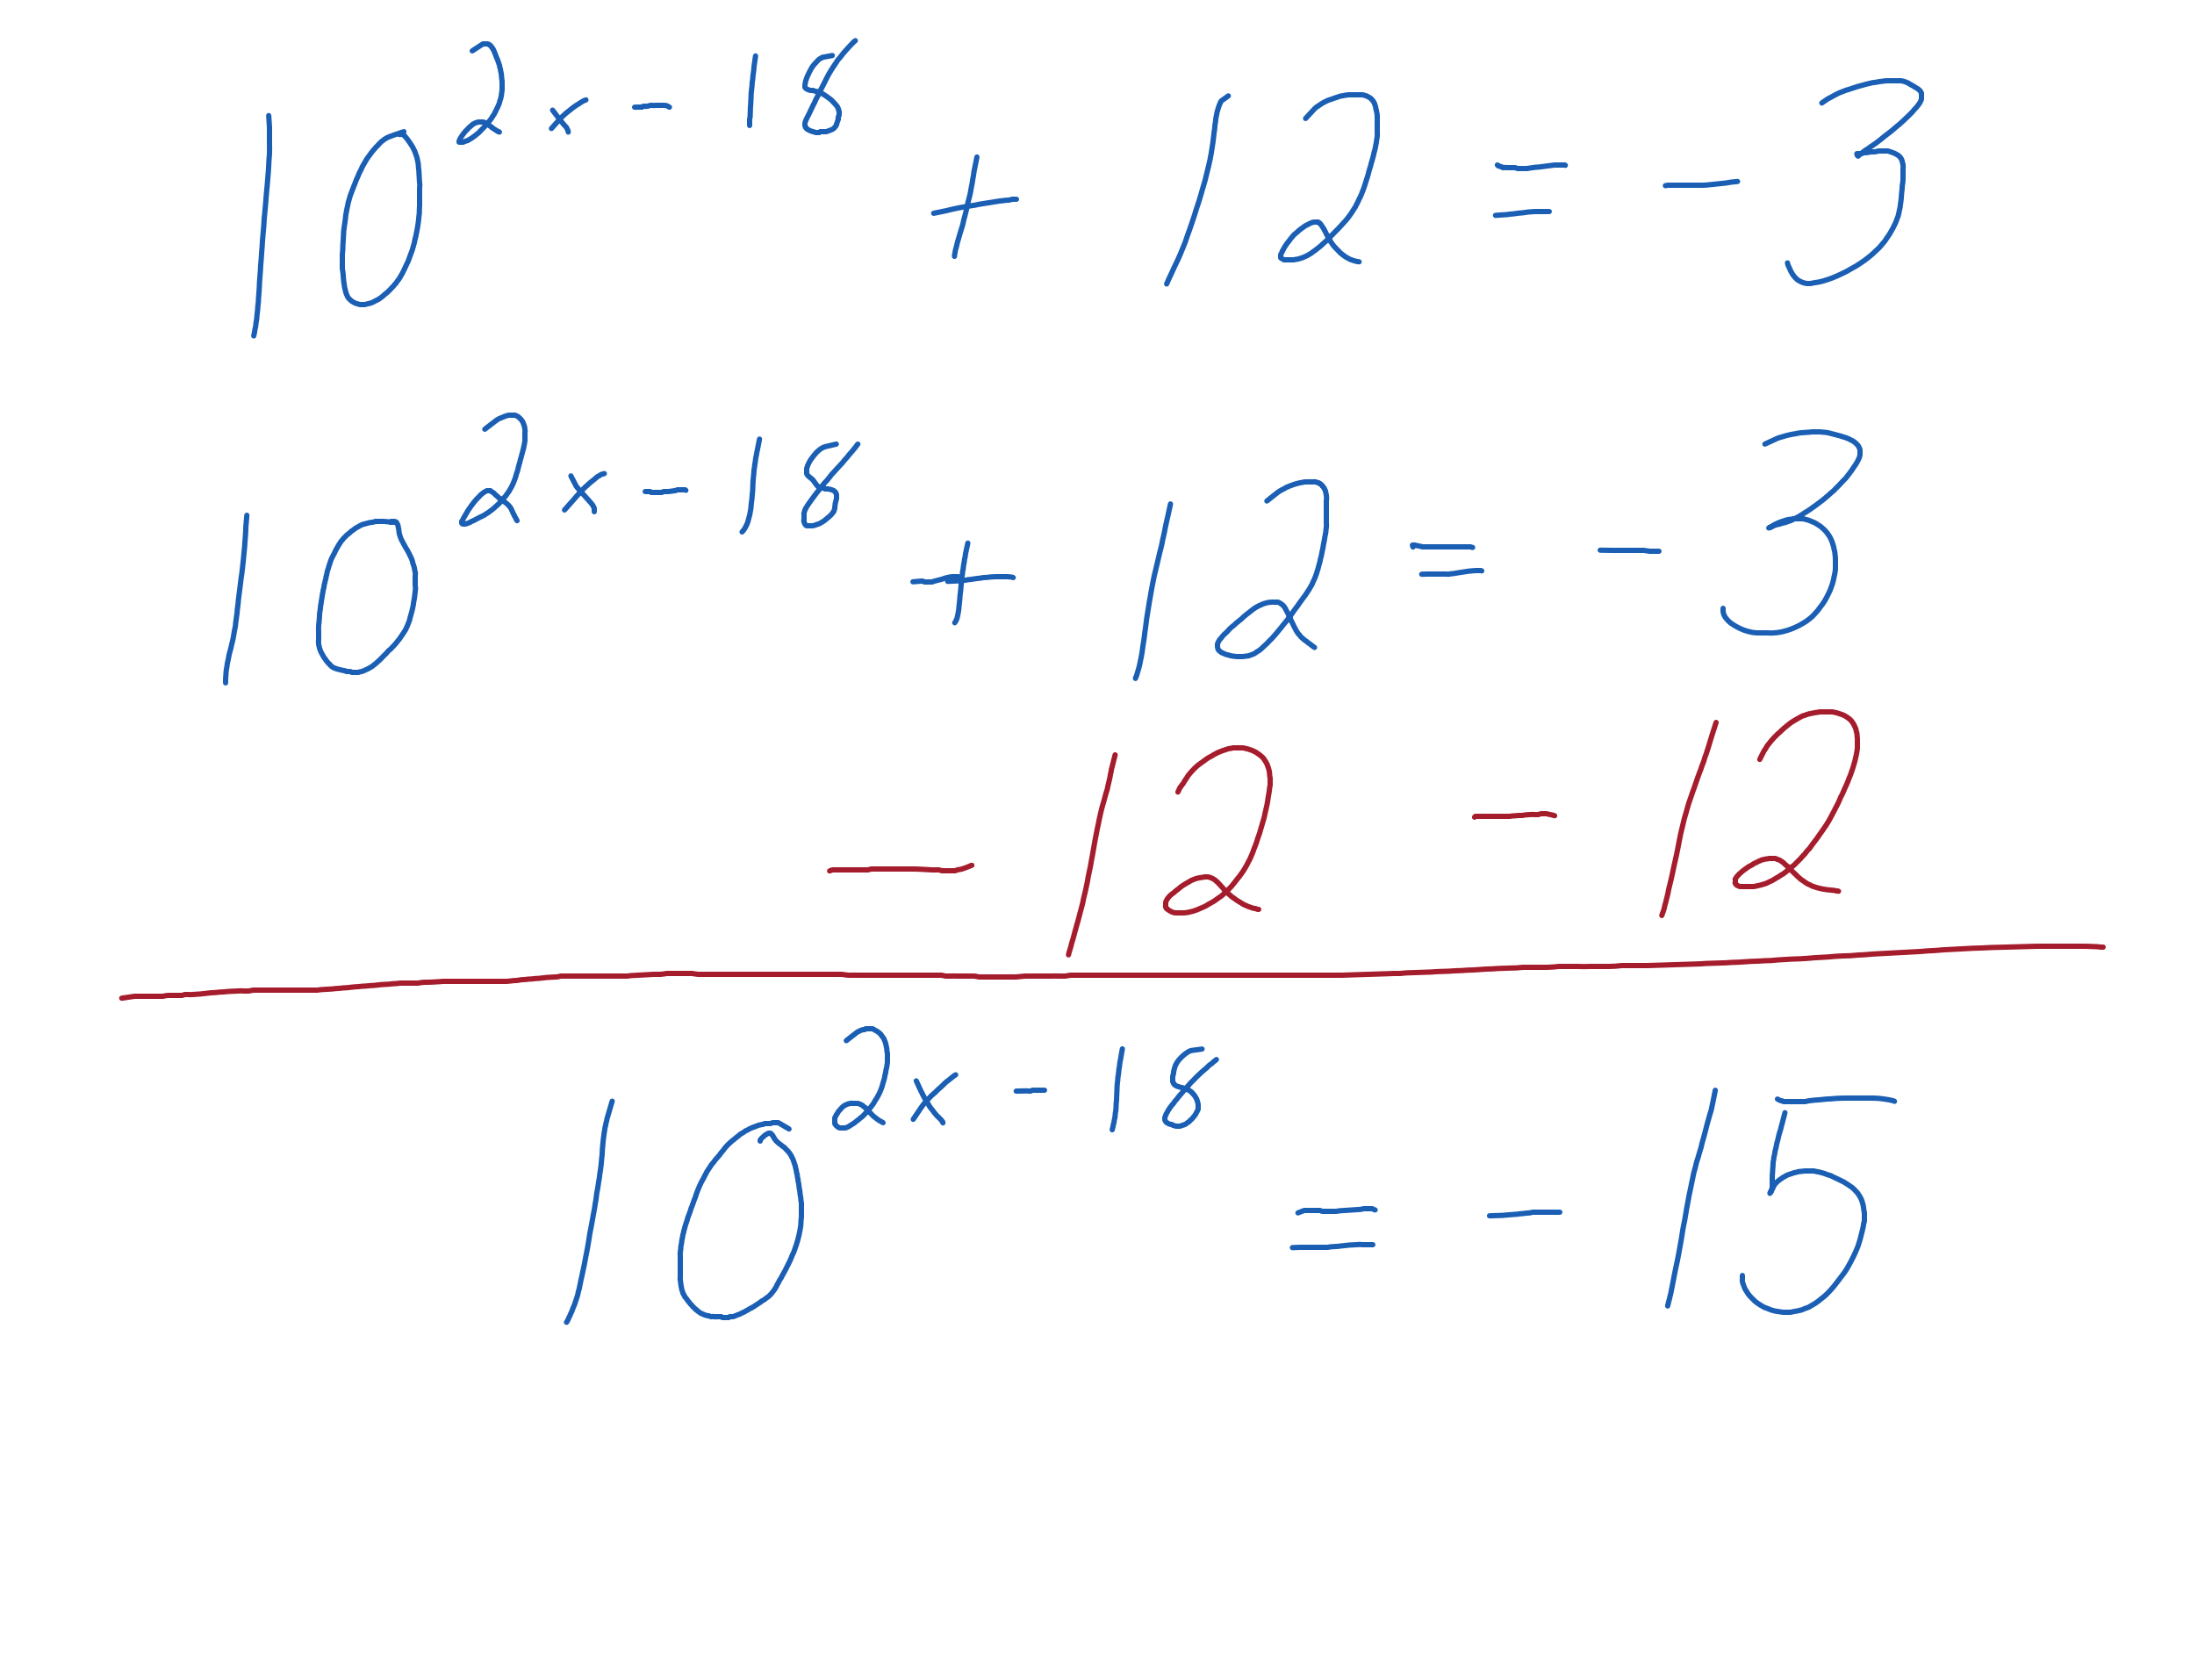 10^{2x - 18} + 12 = - 3
10^{2x - 18} + 12 = - 3
- 12 - 12
10^{2x - 18} = - 15